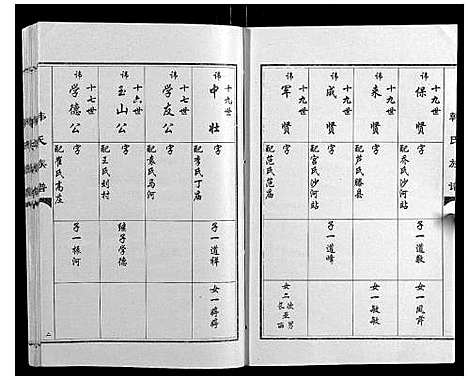 韩氏族谱
十九世
讳
保贤
字
配乔氏沙河站
子一道敬
女一凤芹
十九世
讳
来贤
字
配芦氏滕县
女一敏敏
十九世
讳
成贤
字
配宫氏沙河站
子一道峰
十九世
讳
军贤
字
配范氏范庙
女二
长亚丽
次男
十九世
讳
中壮
字
配李氏丁庙
子一道祥
女一婷婷
十七世
讳
学友公
字
配袁氏马河
十六世
讳
玉山公
字
配王氏刘村
继子学德
十七世
讳
学德公
字
配崔氏高庄
子一振河
韩氏族谱
二